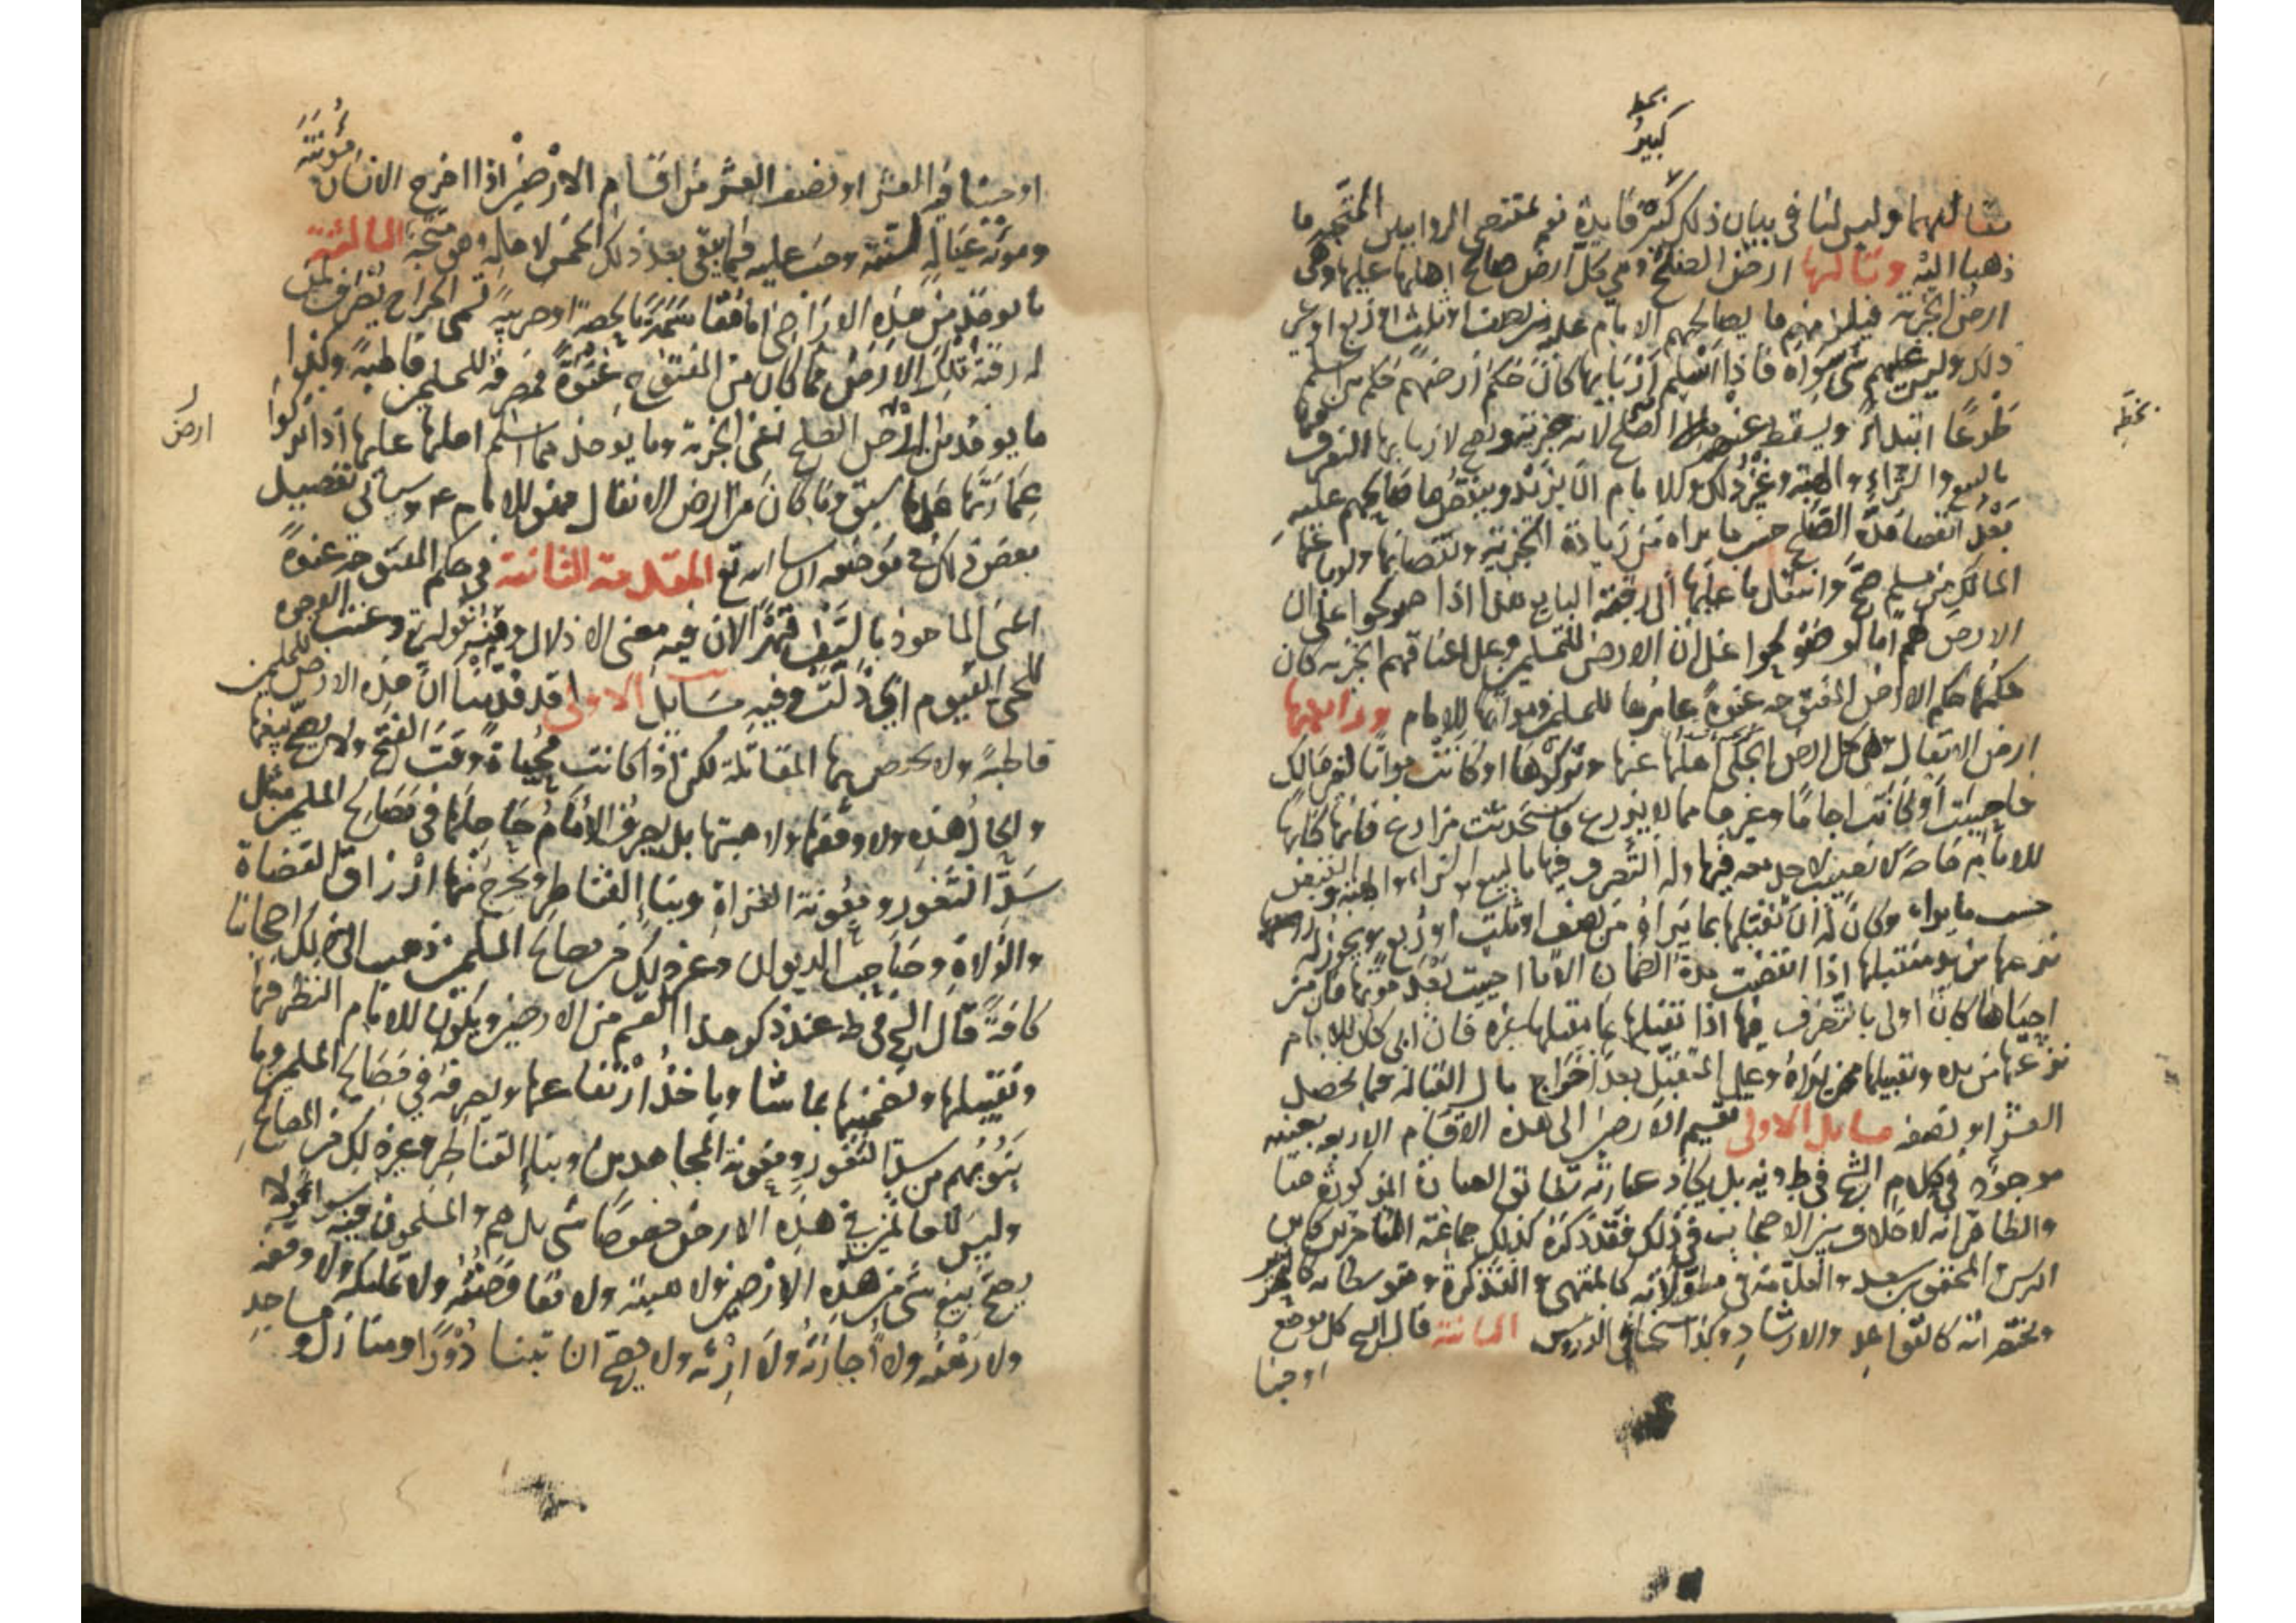 بخط
كبير
مقالتهما وليس لنا في بيان ذلك كثير فايدة نعم مقتضى الروايتين المتجه ما
ذهبا اليه وثالثها ارض الصلح وهي كل ارض صالح اهلها عليها وهي
ارض الجزية فيلزمهم ما يصالحهم الامام عليه من نصف او ثلث او ربع او غير
ذلك وليس عليهم شي سواه فاذا اسلم اربابها كان حكم ارضهم حكم من اسلم
طوعا ابتداءً ويسقط عنهم الصلح لانه جزية ويصح لاربابها التصرف
بالبيع والشراء والهبة وغير ذلك وللامام ان يزيد وينقص ما صالحهم عليه
بعد انقضا مدة الصلح حسب ما يراه من زيادة الجزية ونقصانها ولو باعها
المالك من مسلم صح وانتقل ما عليها الى رقبة البايع هذا اذا صولحوا على ان
الارض لهم اما لو صولحوا على ان الارض للمسلمين وعلى اعناقهم الجزية كان
حكمها حكم الارض المفتوحة عنوة عامرها للمسلمين ومواتها للامام ورابعها
ارض الانفال وهي كل ارض انجلى اهلها عنها وتركوها او كانت مواتا لغير مالك
فاحييت او كانت اجاما وغيرها مما لا يزرع فاستحدثت مزارع فانها كلها
للامام خاصة لا نصيب لاحد معه فيها وله التصرف فيها بالبيع والشراء والهبة
حسب ما يراه وكان له ان يقبلها بما يراه من نصف او ثلث او ربع ويجوز له
نزعها من يد متقبلها اذا انقضت مدة الضمان الا ما احييت بعد موتها فان من
احياها كان اولى بالتصرف فيها اذا تقبلها بما يتقبلها غيره فان ابى كان للامام
نزعها من يده وتقبيلها لمن يراه وعلى المتقبل بعد اخراج مال القبالة فيما يحصل
العشر او نصفه مسايل الاولى تقسيم الارضين الى هذه الاقسام الاربعة بعينه
موجود في كلام الشيخ في ط ويه بل يكاد عبارته تطابق العبارة المذكورة هنا
والظاهر انه لا خلاف بين الاصحاب في ذلك فقد ذكره كذلك جماعة المتاخرين كابن
ادريس والمحقق بن سعيد والعلامة في مطولاته كالمنتهى والتذكرة ومتوسطاته كالتحرير
ومختصراته كالقواعد والارشاد وكذا شيخنا في الدروس الثانية قال الشيخ كل موضع
اوجبنا
بخطه
مؤنته
اوجبنا فيه العشر او نصف العشر من اقسام الارضين اذا اخرج الانسان
ومونة عياله السنة وجب عليه فيما يبقى بعد ذلك الخمس لاهله وهو متجه الثالثة
ما يوخذ من هذه الاراضي اما مقاسمة بالحصة او ضريبة تسمى الخراج يصرف لمن
له رقبة تلك الارض فما كان من المفتوح عنوة فمصرفه للمسلمين قاطبة وكذا
ما يوخذ من ارض الصلح اعني الجزية وما يوخذ مما اسلم اهلها عليها اذا تركوا
عمارتها على ما سبق وما كان من ارض الانفال فهو للامام ع وسياتي تفصيل
بعض ذلك في موضعه ان شا الله تع المقدمة الثانية في حكم المفتوحة عنوة
اعني الماخوذ بالسيف قهرا لان فيه معنى الاذلال ومنه قوله وعنت الوجوه
للحي القيوم اي ذلت وفيه مسايل الاولى قد قدمنا ان هذه الارض للمسلمين
قاطبة ولا يختص بها المقاتلة لكن اذا كانت محياة وقت الفتح ولا يصح بيعها
والحال هذه ولا وقفها ولا هبتها بل يصرف الامام حاصلها في مصالح المسلمين مثل
سد الثغور ومعونة الغزاة وبنا القناطر ويخرج منها ارزاق القضاة
والولاة وصاحب الديوان وغير ذلك من مصالح المسلمين ذهب الى ذلك اصحابنا
كافة قال الشيخ في ط عند ذكر هذا القسم من الارضين ويكون للامام النظر فيها
وتقبيلها وتضمينها بما شا وياخذ ارتفاعها ويصرفه في مصالح المسلمين وما
ينوبهم من سد الثغور ومعونة المجاهدين وبنا القناطر وغير ذلك من المصالح
وليس للغانمين في هذه الارض خصوصا شي بل هم والمسلمون فيه سواء ولا
يصح بيع شي من هذه الارضين ولا هبته ولا معاوضته ولا تمليكه ولا وقفه
ولا رهنه ولا اجارته ولا ارثه ولا يصح ان تبنا دورا ومنازل ومساجد
ارض